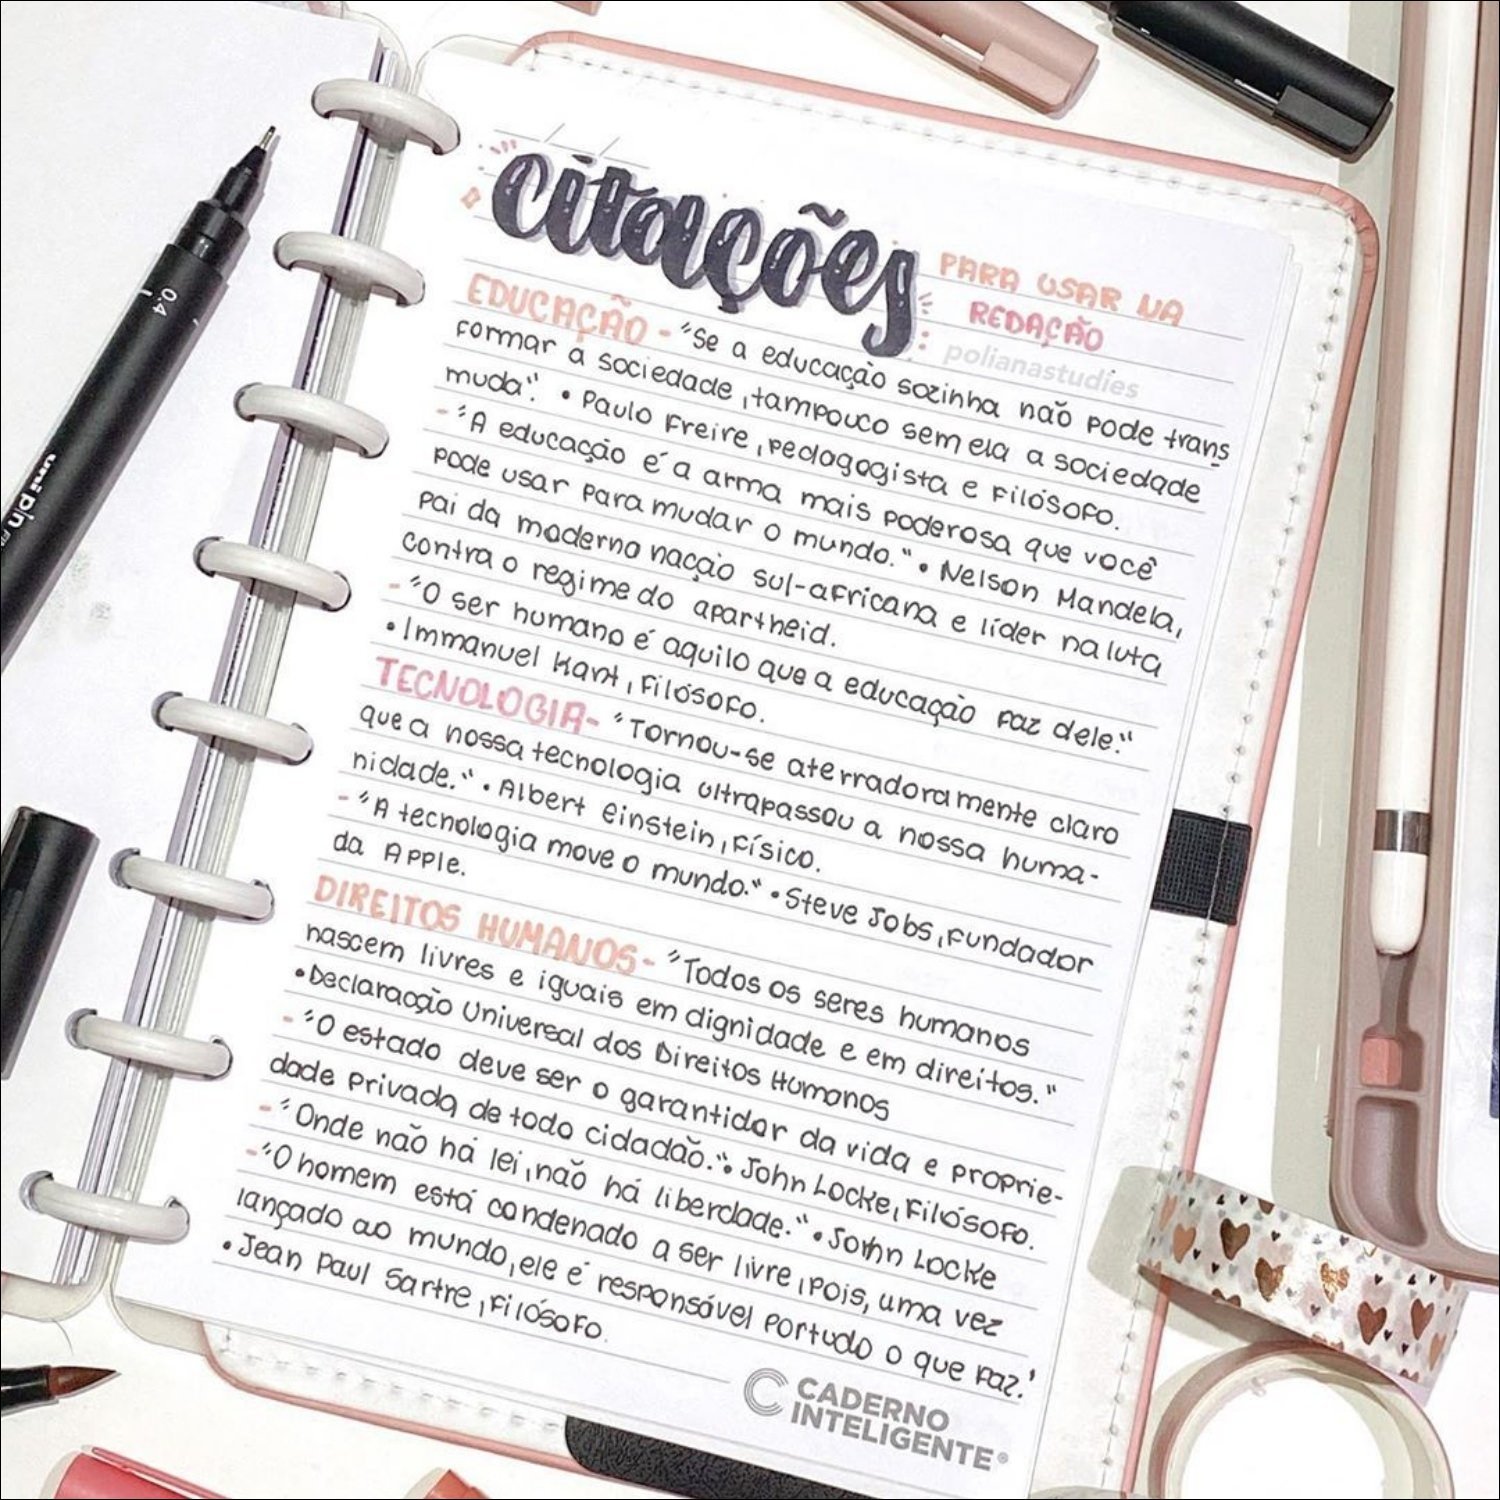 citações
PARA USAR NA
REDAÇÃO
polianastudies
EDUCAÇÃO - "Se a educação sozinha não pode trans
formar a sociedade, tampouco sem ela a sociedade
muda". • Paulo Freire, pedagogista e filósofo.
- "A educação é a arma mais poderosa que você
pode usar para mudar o mundo." • Nelson Mandela,
pai da moderna nação sul-africana e líder na luta
contra o regime do apartheid.
- "O ser humano é aquilo que a educação faz dele."
• Immanuel Kant, filósofo.
TECNOLOGIA - "Tornou-se aterradoramente claro
que a nossa tecnologia ultrapassou a nossa huma-
nidade." • Albert Einstein, físico.
- "A tecnologia move o mundo." • Steve Jobs, fundador
da Apple.
DIREITOS HUMANOS - "Todos os seres humanos
nascem livres e iguais em dignidade e em direitos."
• Declaração Universal dos Direitos Humanos
- "O estado deve ser o garantidor da vida e proprie-
dade privada de todo cidadão." • John Locke, filósofo.
- "Onde não há lei, não há liberdade." • John Locke
- "O homem está condenado a ser livre, pois, uma vez
lançado ao mundo, ele é responsável por tudo o que faz.'
• Jean Paul Sartre, filósofo.
CADERNO
INTELIGENTE®
0.4
uni pin